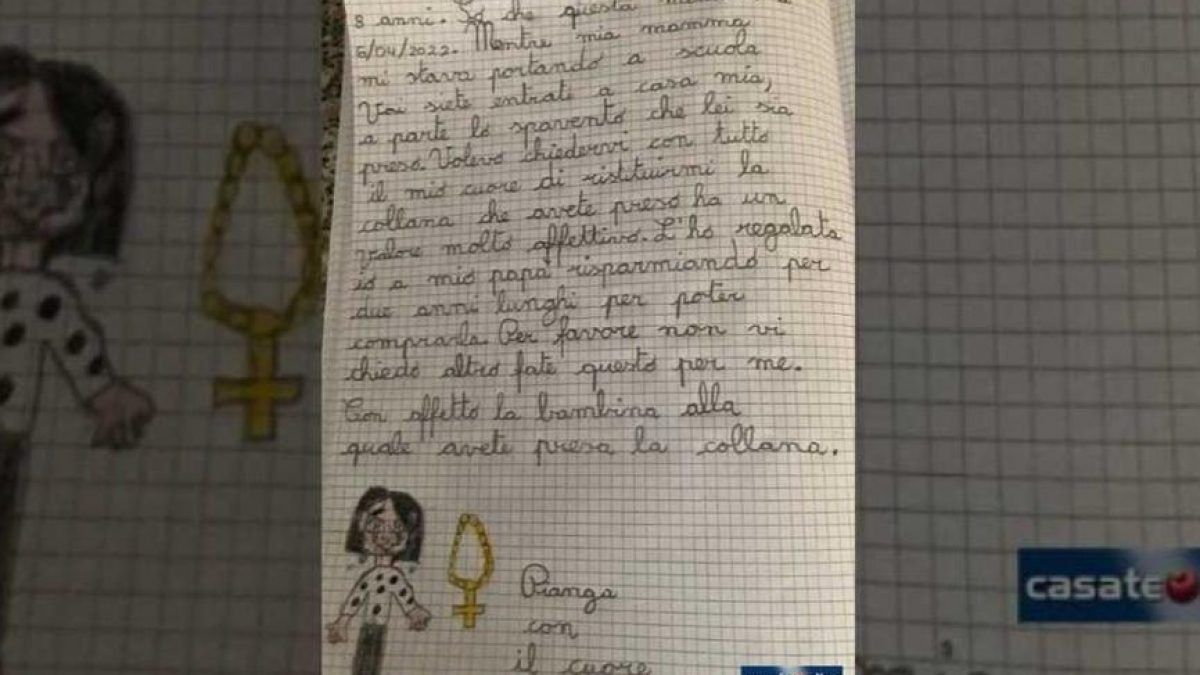 8 anni. So che questa
6/04/2022. Mentre mia mamma
mi stava portando a scuola
Voi siete entrati a casa mia,
a parte lo spavento che lei sia
presa. Volevo chiedervi con tutto
il mio cuore di ristituirmi la
collana che avete preso ha un
valore molto affettivo. L'ho regalata
io a mio papà risparmiando per
due anni lunghi per poter
comprarla. Per favore non vi
chiedo altro fate questo per me.
Con affetto la bambina alla
quale avete presa la collana.
Pianga
con
il cuore
casate